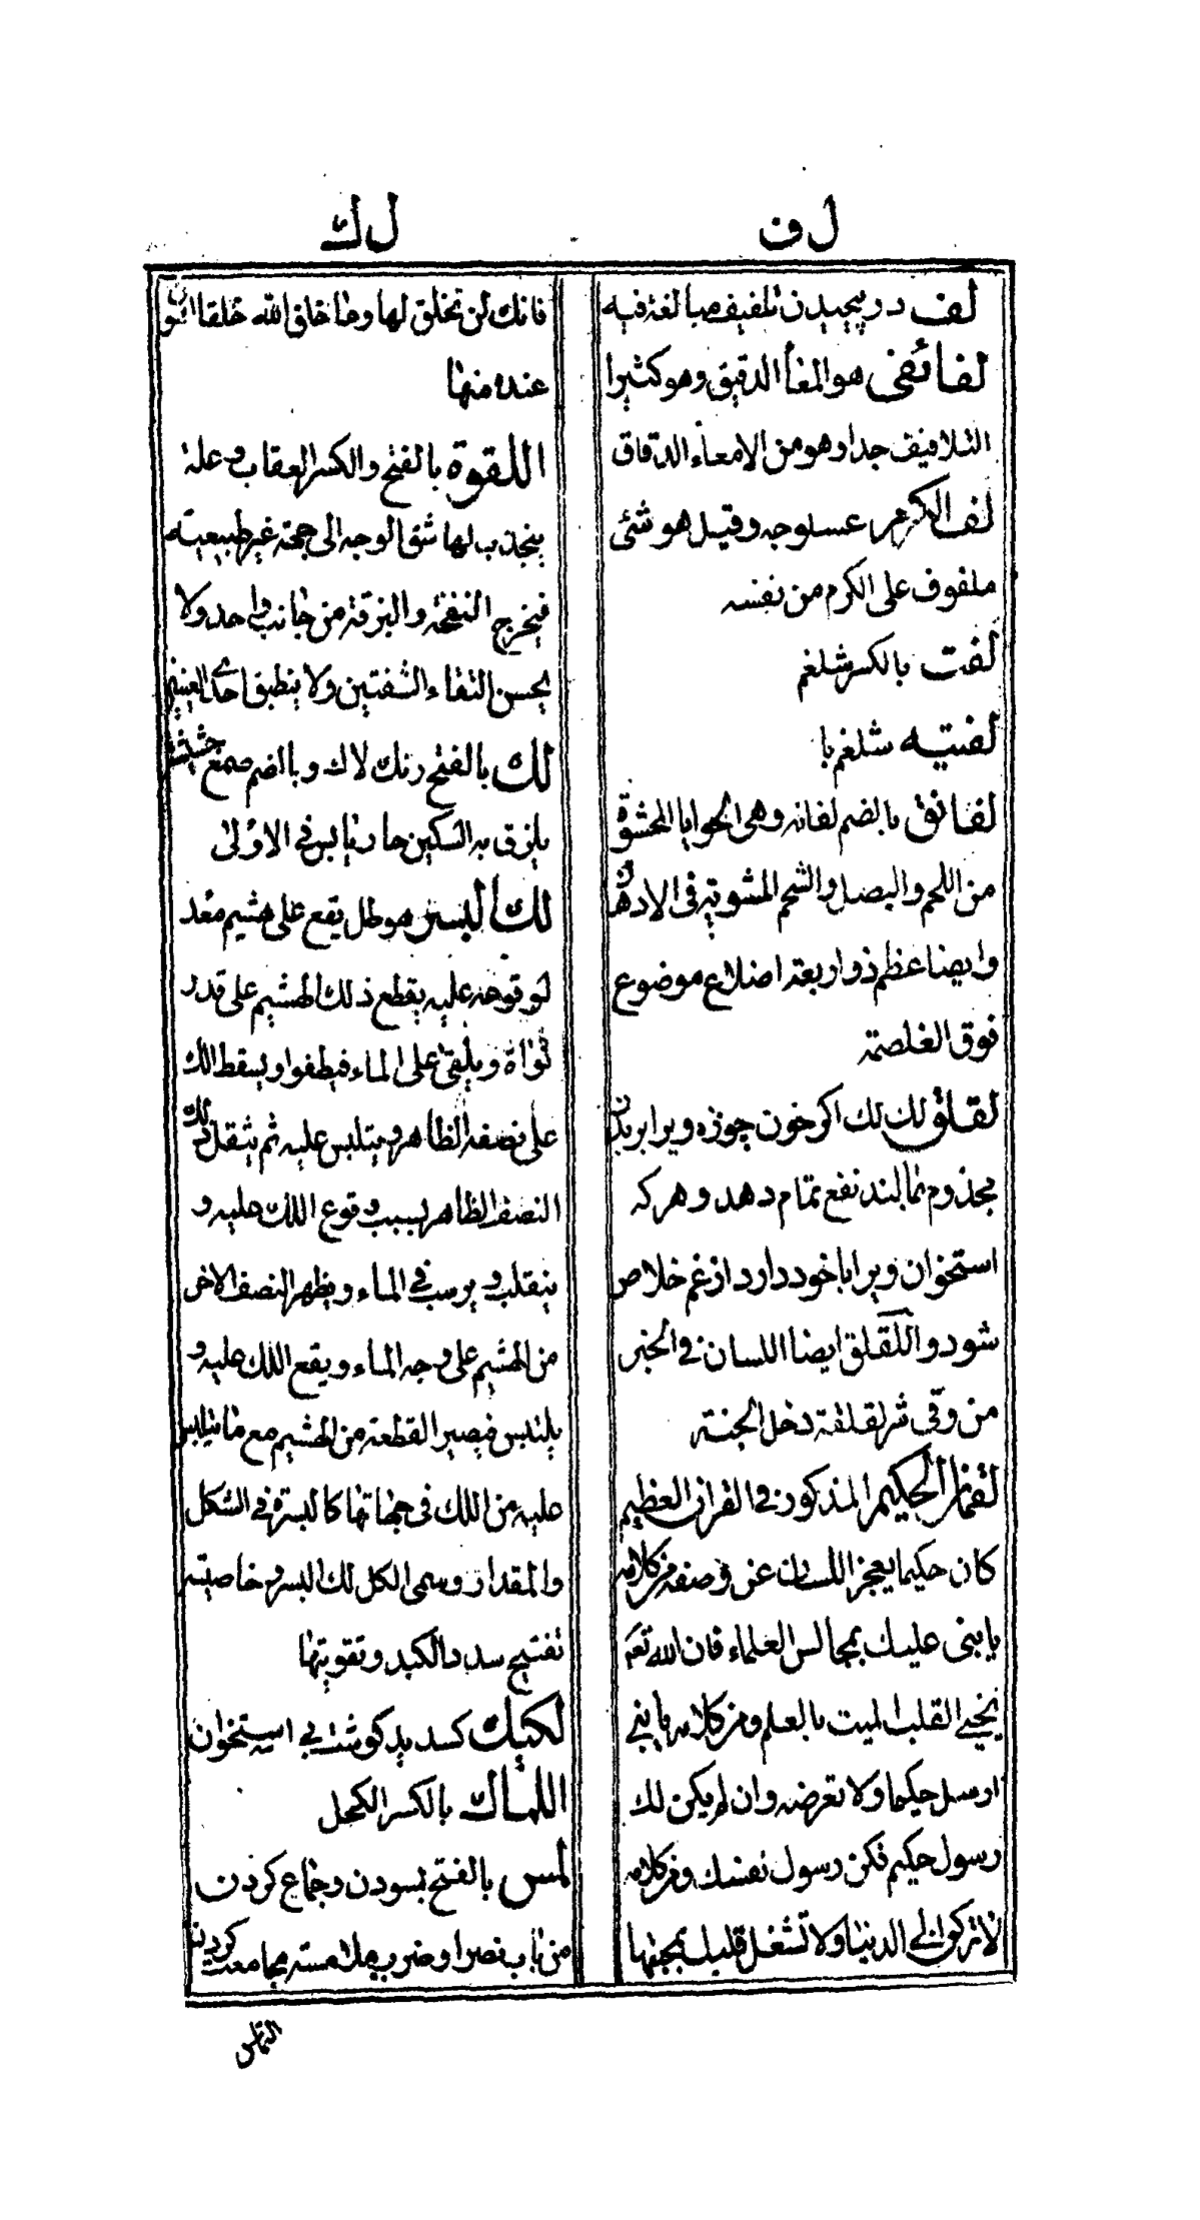 ل ف
لف در پیچیدن تلفیف مبالغة فیه
لفائفی هو المعأ الدقیق وهو کثیرا
التلافیف جدا وهو من الامعاء الدقاق
لف الکرم عسلوجه وقیل هو شئی
ملفوف علی الکرم من نفسه
لفت بالکسر شلغم
لفتیه شلغم با
لفانق بالضم لفانه وهی الحوایا المحشوة
من اللحم والبصل والشحم المشویة فی الادهان
وایضا عظم ذو اربعة اضلاع موضوع
فوق الغلصمة
لقلق لک لک اکر خون چوزه ویرا بربدن
مجذوم بمالند نفع تمام دهد و هر که
استخوان ویرا با خود دارد از غم خلاص
شود واللقلق ایضا اللسان فی الخبر
من وقی شر لقلقة دخل الجنة
لقمان الحکیم المذکور فی القران العظیم
کان حکیما یعجز اللسان عن وصفه من کلامه
یا بنی علیک بمجالس العلماء فان الله تعم
یحیی القلب المیت بالعلم ومن کلامه یا بنی
ارسل حکیما ولا تعرضه وان لم یکن لک
رسول حکیم فکن رسول نفسک ومن کلامه
لا ترکن الی الدنیا ولا تشغل قلبک بمحبتها
ل ك
فانك لن تخلق لها وما خلق الله خلقا اهون
عنده منها
اللقوة بالفتح والکسر العقاب وعلة
ینجذب لها شق الوجه الی جهة غیر طبیعیته
فیخرج النفخة والبزقة من جانب واحد ولا
یحسن التقاء الشفتین ولا ینطبق احدی العینین
لك بالفتح رنك لاك و بالضم صمغ حشیشة
یلزق به السکین حار یابس فی الاولی
لك البسر هو طل یقع علی هشیم معد
لوقوعه علیه یقطع ذلك الهشیم علی قدر
نواة ویلقی علی الماء فیطفوا ویسقط الك
علی نصفه الظاهر ویتلبس علیه ثم یثقل ذلك
النصف الظاهر بسبب وقوع اللك علیه و
ینقلب و یرسب فی الماء ویظهر النصف الاخر
من الهشیم علی وجه الماء ویقع اللك علیه و
یلتبس فیصیر القطعة من الهشیم مع ما یتلبس
علیه من اللك فی جهاتها کالبسرة فی الشکل
والمقدار وسمی الکل لك البسر وخاصیته
تفتیح سدد الکبد وتقویتها
لکیك کسد ید کوشت بی استخوان
اللماك بالکسر الکحل
لمس بالفتح بسودن وجماع کردن
من باب نصر او ضرب ملامسته مجامعت کردن
التماس